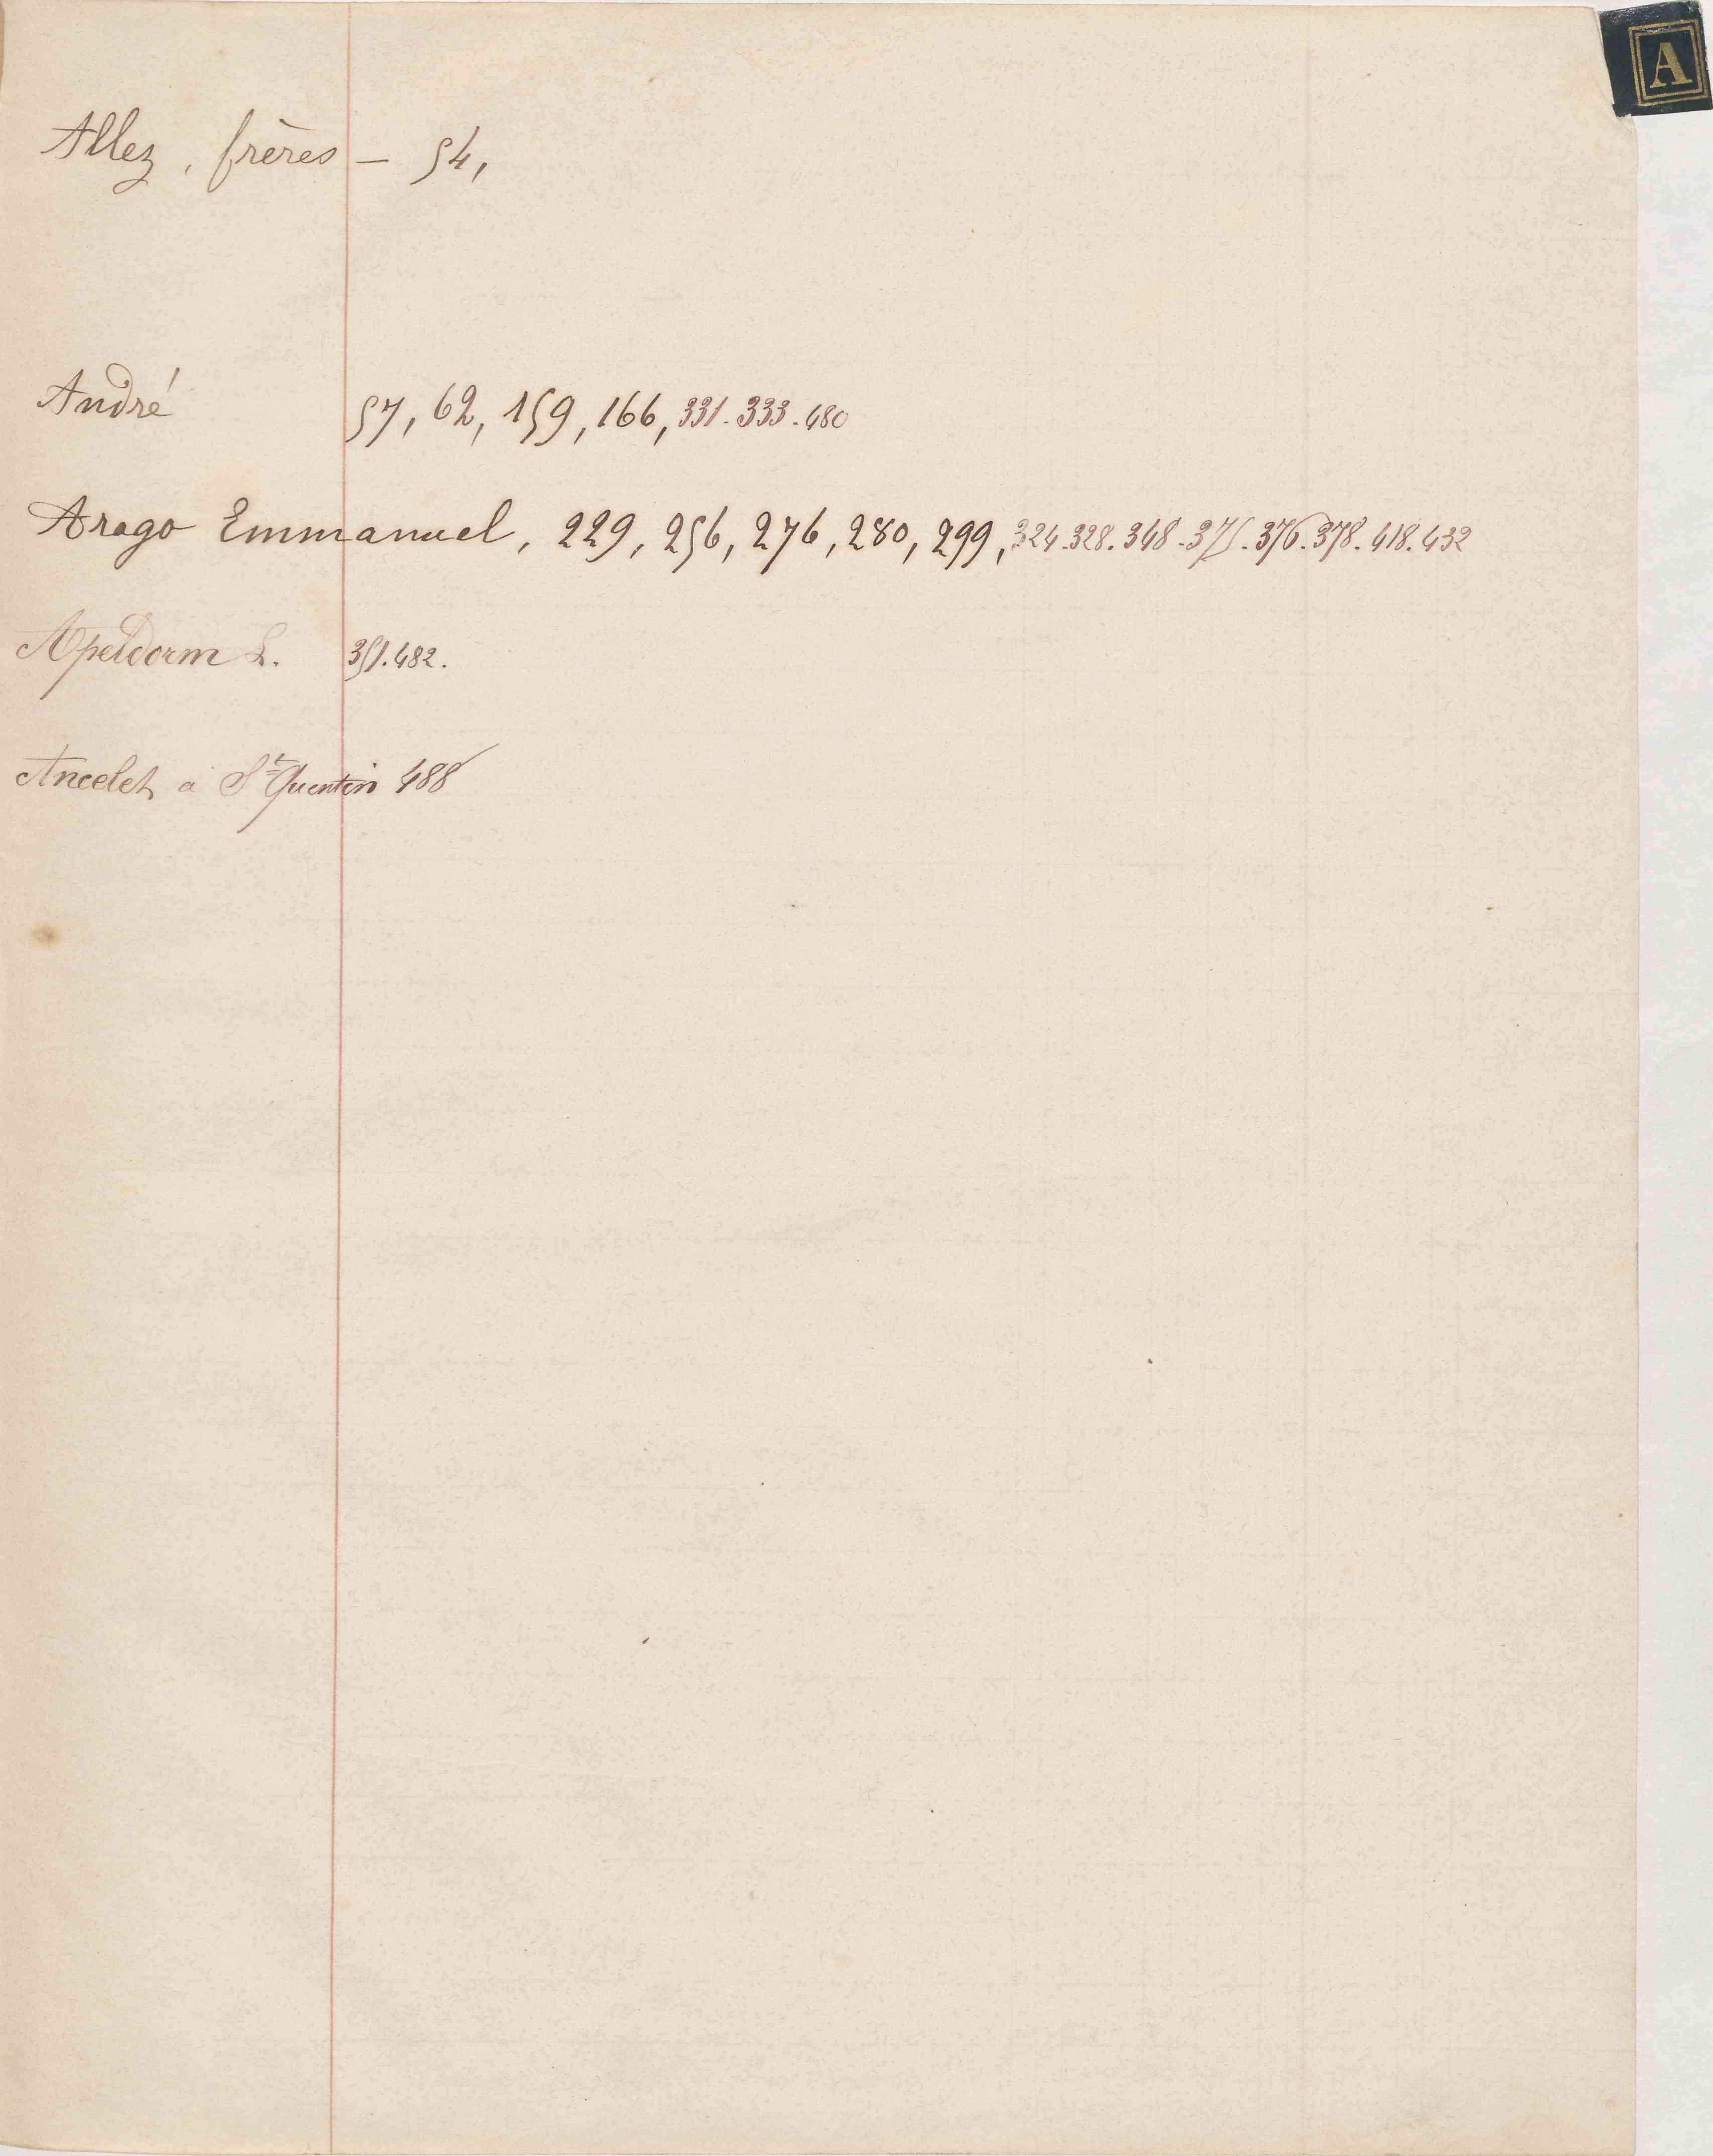 A
Allez, frères — 54,
André 57, 62, 159, 166, 331. 333. 480
Arago Emmanuel, 229, 256, 276, 280, 299, 324. 328. 348. 375. 376. 378. 418. 432
Apeldorm L. 351. 482.
Ancelet à St Quentin 488